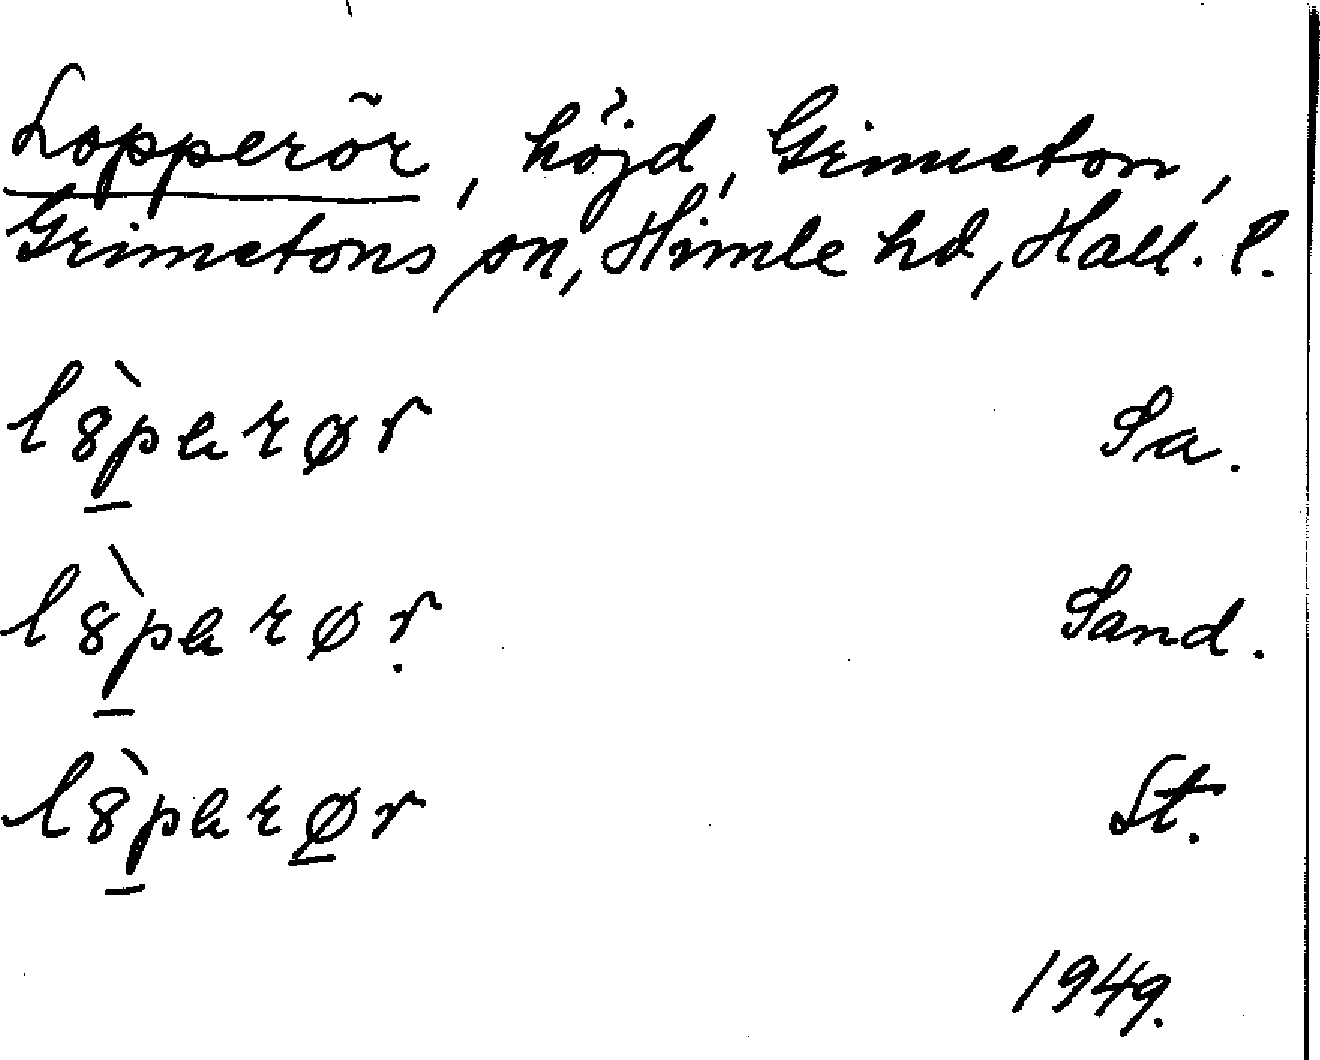 Lopperör, höjd, Grimeton,
Grimetons sn, Himle hd, Hall. l.
l8̀p̲erør Sa.
l8̀p̲erøṛ Sand.
l8̀p̲erø̲r St.
1949.